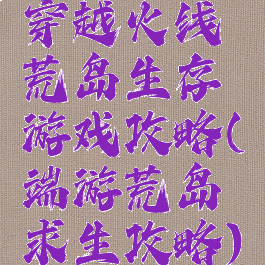 穿越火线
荒岛生存
游戏攻略(
端游荒岛
求生攻略)